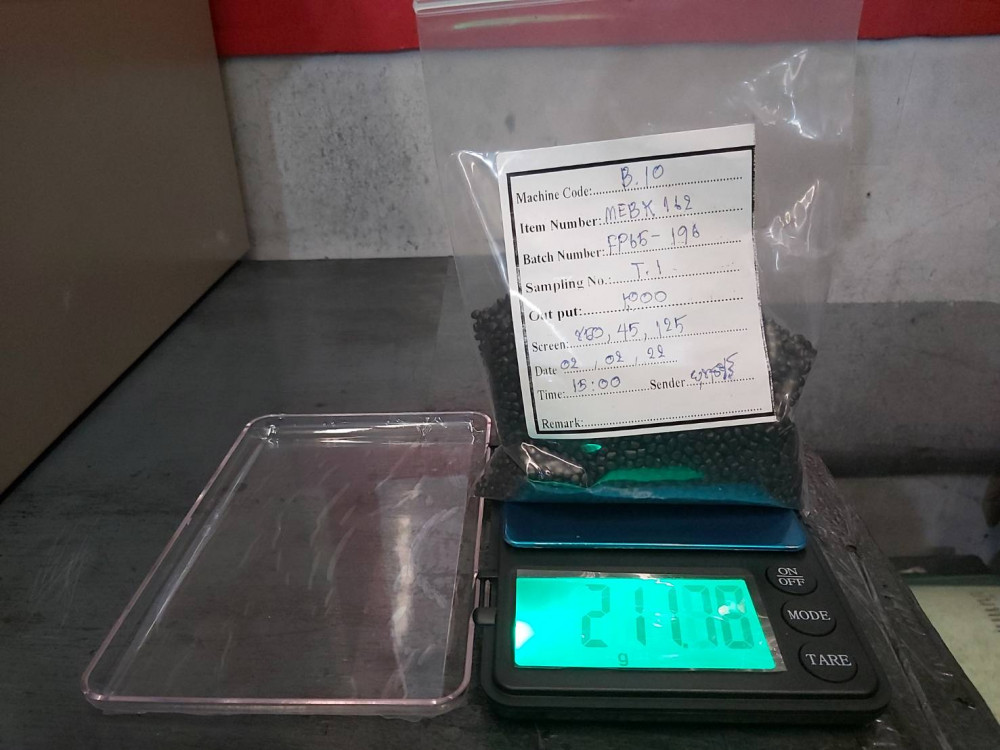 Machine Code: B.10
Item Number: MEBK 162
Batch Number: FP65-196
Sampling No.: T.1
Out put: 1000
Screen: 45, 125
Date 02, 02, 22
Time: 15:00 Sender
Remark:
ON
OFF
MODE
TARE
g